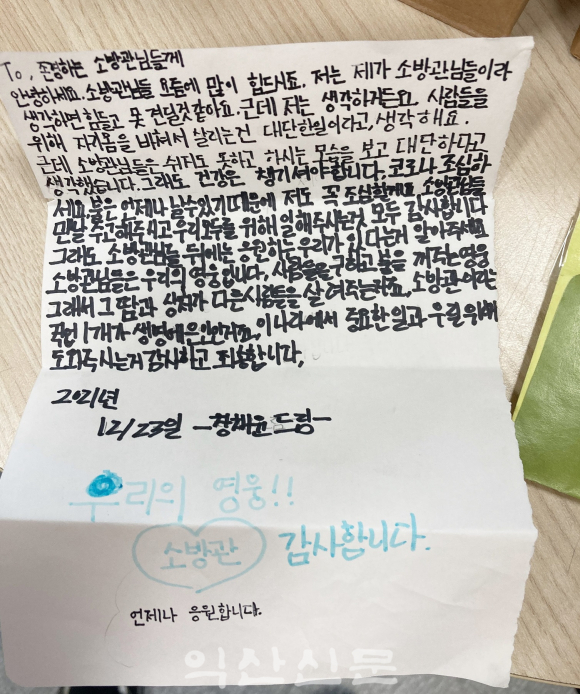 To, 존경하는 소방관님들께
안녕하세요. 소방관님들 요즘에 많이 힘드시죠. 저는 제가 소방관님들이라
생각하면 힘들고 못 견딜것같아요. 근데 저는 생각하거든요, 사람들을
위해 자기몸을 바쳐서 살리는건 대단한일이라고, 생각해요.
근데 소방관님들은 쉬지도 못하고 하시는 모습을 보고 대단하다고
생각했습니다. 그래도 건강은 챙기셔야합니다. 코로나 조심하
세요, 불은 언제나 날수있기때문에 저도 꼭 조심할게요. 소방관님들
맨날 수고해주시고 우리모두를 위해 일해주시는것 모두 감사합니다
그래도 소방관님들 뒤에는 응원하는 우리가 있다는거 알아주세요.
소방관님들은 우리의 영웅입니다, 사람들을 구하고 불을 꺼주는 영웅
그래서 그 땀과 상처가 다른사람들을 살려주는거죠, 소방관이라는
직업 1개가 생명에은인인거죠, 이 나라에서 중요한 일과 우릴 위해
도와주시는거 감사하고 죄송합니다,
2021년
12/23일 -창채윤드림-
우리의 영웅!!
소방관 감사합니다.
언제나 응원합니다.
익산신문